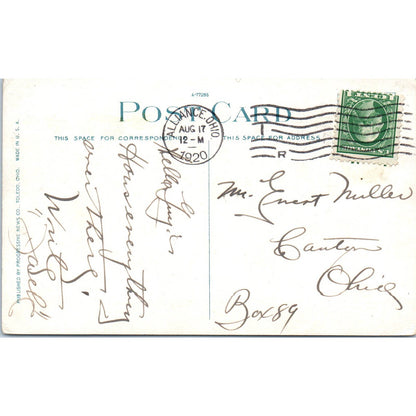 A-77285
POST CARD
THIS SPACE FOR CORRESPONDENCE
THIS SPACE FOR ADDRESS
ALLIANCE, OHIO
AUG 17
12-M
1920
R
Hello
How's everything
over there,
Write
Mr. Ernest Miller
Canton
Ohio
Box 89
PUBLISHED BY PROGRESSIVE NEWS CO. TOLEDO, OHIO. MADE IN U. S. A.